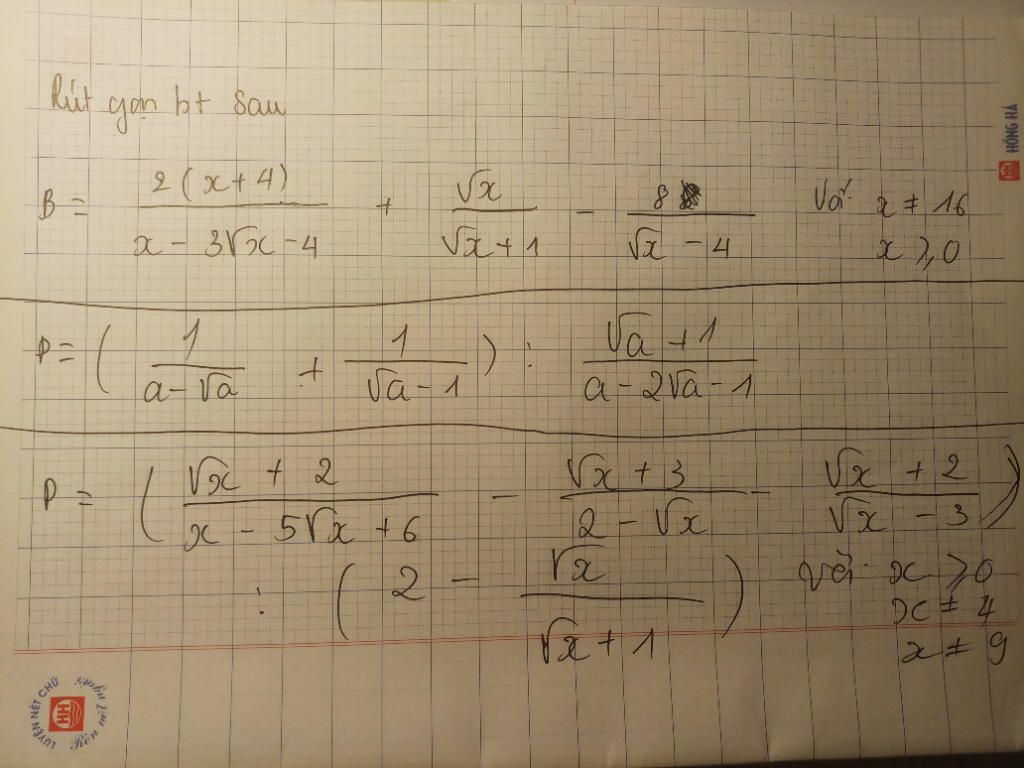 Rút gọn bt sau
B = \frac{2(x+4)}{x-3\sqrt{x}-4} + \frac{\sqrt{x}}{\sqrt{x}+1} - \frac{8}{\sqrt{x}-4} Với x ≠ 16
x ⩾ 0
P = ( \frac{1}{a-\sqrt{a}} + \frac{1}{\sqrt{a}-1} ) : \frac{\sqrt{a}+1}{a-2\sqrt{a}-1}
P = ( \frac{\sqrt{x}+2}{x-5\sqrt{x}+6} - \frac{\sqrt{x}+3}{2-\sqrt{x}} - \frac{\sqrt{x}+2}{\sqrt{x}-3} )
: ( 2 - \frac{\sqrt{x}}{\sqrt{x}+1} ) với x ⩾ 0
x ≠ 4
x ≠ 9
HỒNG HÀ
LUYỆN NÉT CHỮ
Rèn nét người
HH